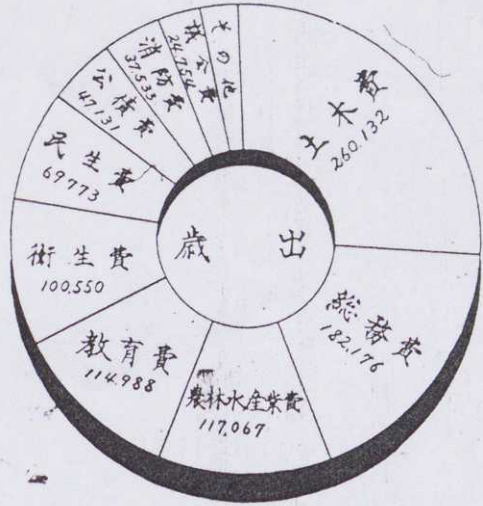 歳出
土木費
260.132
総務費
182,176
農林水産業費
117,067
教育費
114.988
衛生費
100,550
民生費
69773
公債費
47,131
消防費
37,533
議会費
24,754
その他